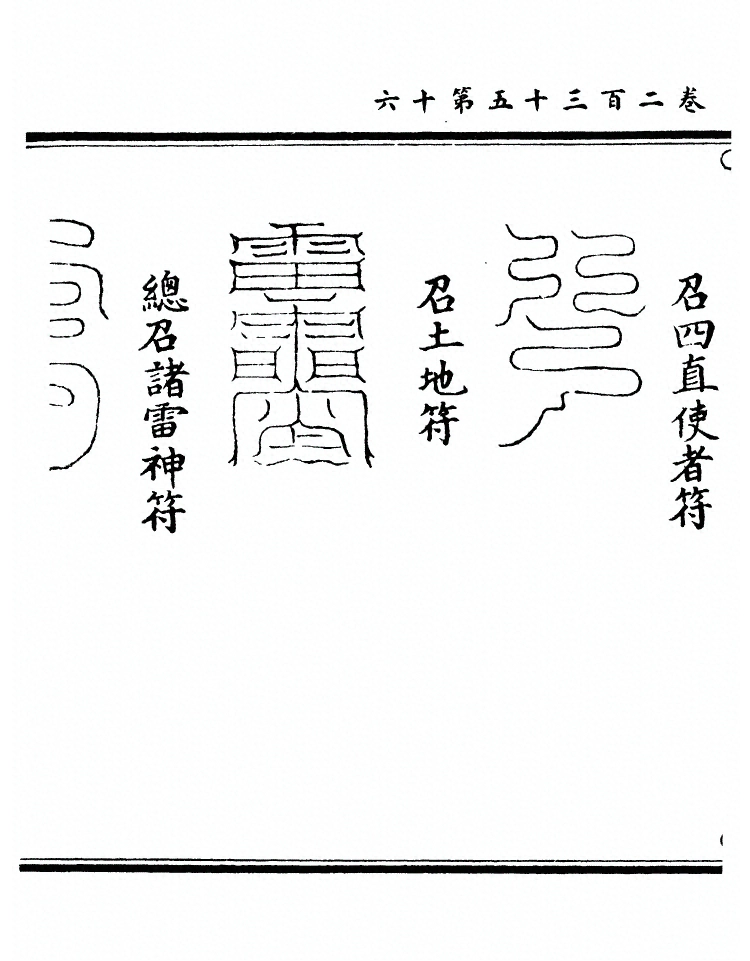 卷二百三十五第十六
召四直使者符
召土地符
總召諸雷神符